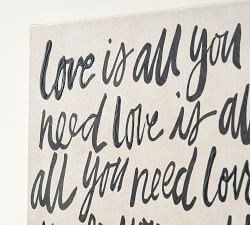 love is all you
need love is al
all you need love